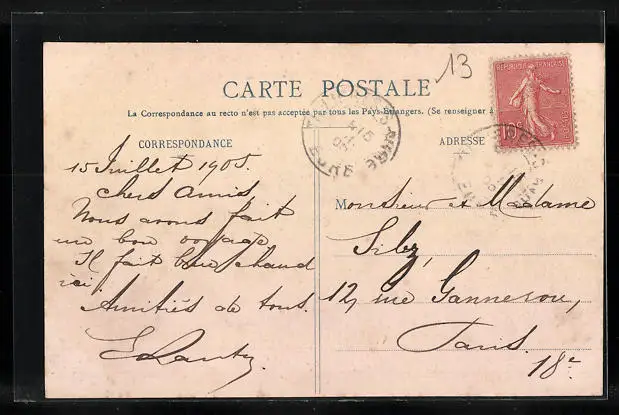 13
CARTE POSTALE
La Correspondance au recto n'est pas acceptée par tous les Pays-Étrangers. (Se renseigner à
REPUBLIQUE FRANÇAISE
10
CORRESPONDANCE
ADRESSE
EURE
15 Juillet 1905.
Chers Amis
Nous avons fait
un bon voyage,
Il fait bien chaud
ici
Amitiés de tous.
Monsieur et Madame
12, rue Ganneron,
Paris.
18e